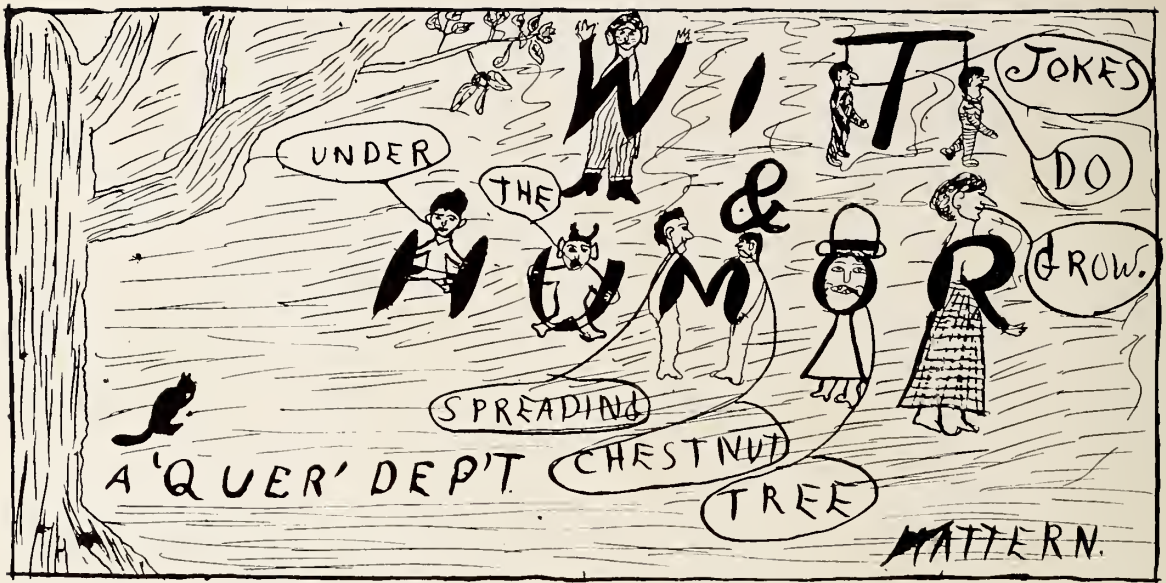 WIT
&
HUMOR
UNDER
THE
SPREADING
CHESTNUT
TREE
JOKES
DO
GROW.
A 'QUER' DEP'T.
MATTERN.